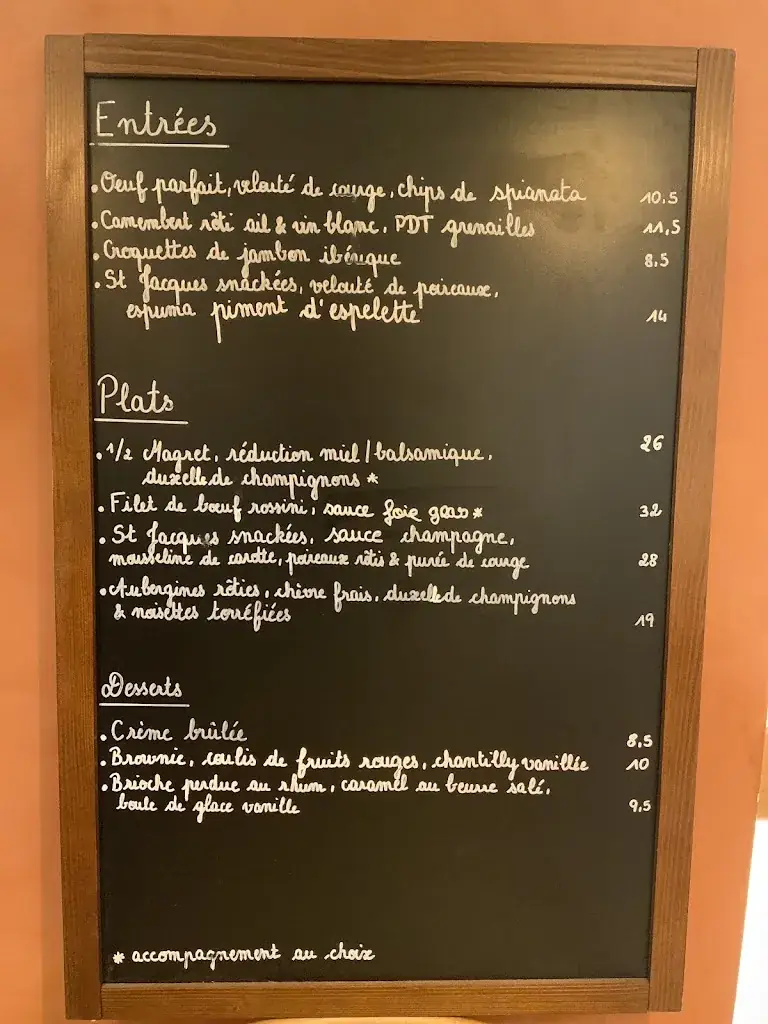 Entrées
• Oeuf parfait, velouté de courge, chips de spianata 10.5
• Camembert rôti ail & vin blanc, PDT grenailles 11,5
• Croquettes de jambon ibérique 8,5
• St Jacques snackées, velouté de poireaux,
espuma piment d'espelette 14
Plats
• 1/2 Magret, réduction miel / balsamique, 26
duxelle de champignons *
• Filet de bœuf rossini, sauce foie gras * 32
• St Jacques snackées, sauce champagne,
mousseline de carotte, poireaux rôtis & purée de courge 28
• Aubergines rôties, chèvre frais, duxelle de champignons
& noisettes torréfiées 19
Desserts
• Crème brûlée 8,5
• Brownie, coulis de fruits rouges, chantilly vanillée 10
• Brioche perdue au rhum, caramel au beurre salé,
boule de glace vanille 9,5
* accompagnement au choix